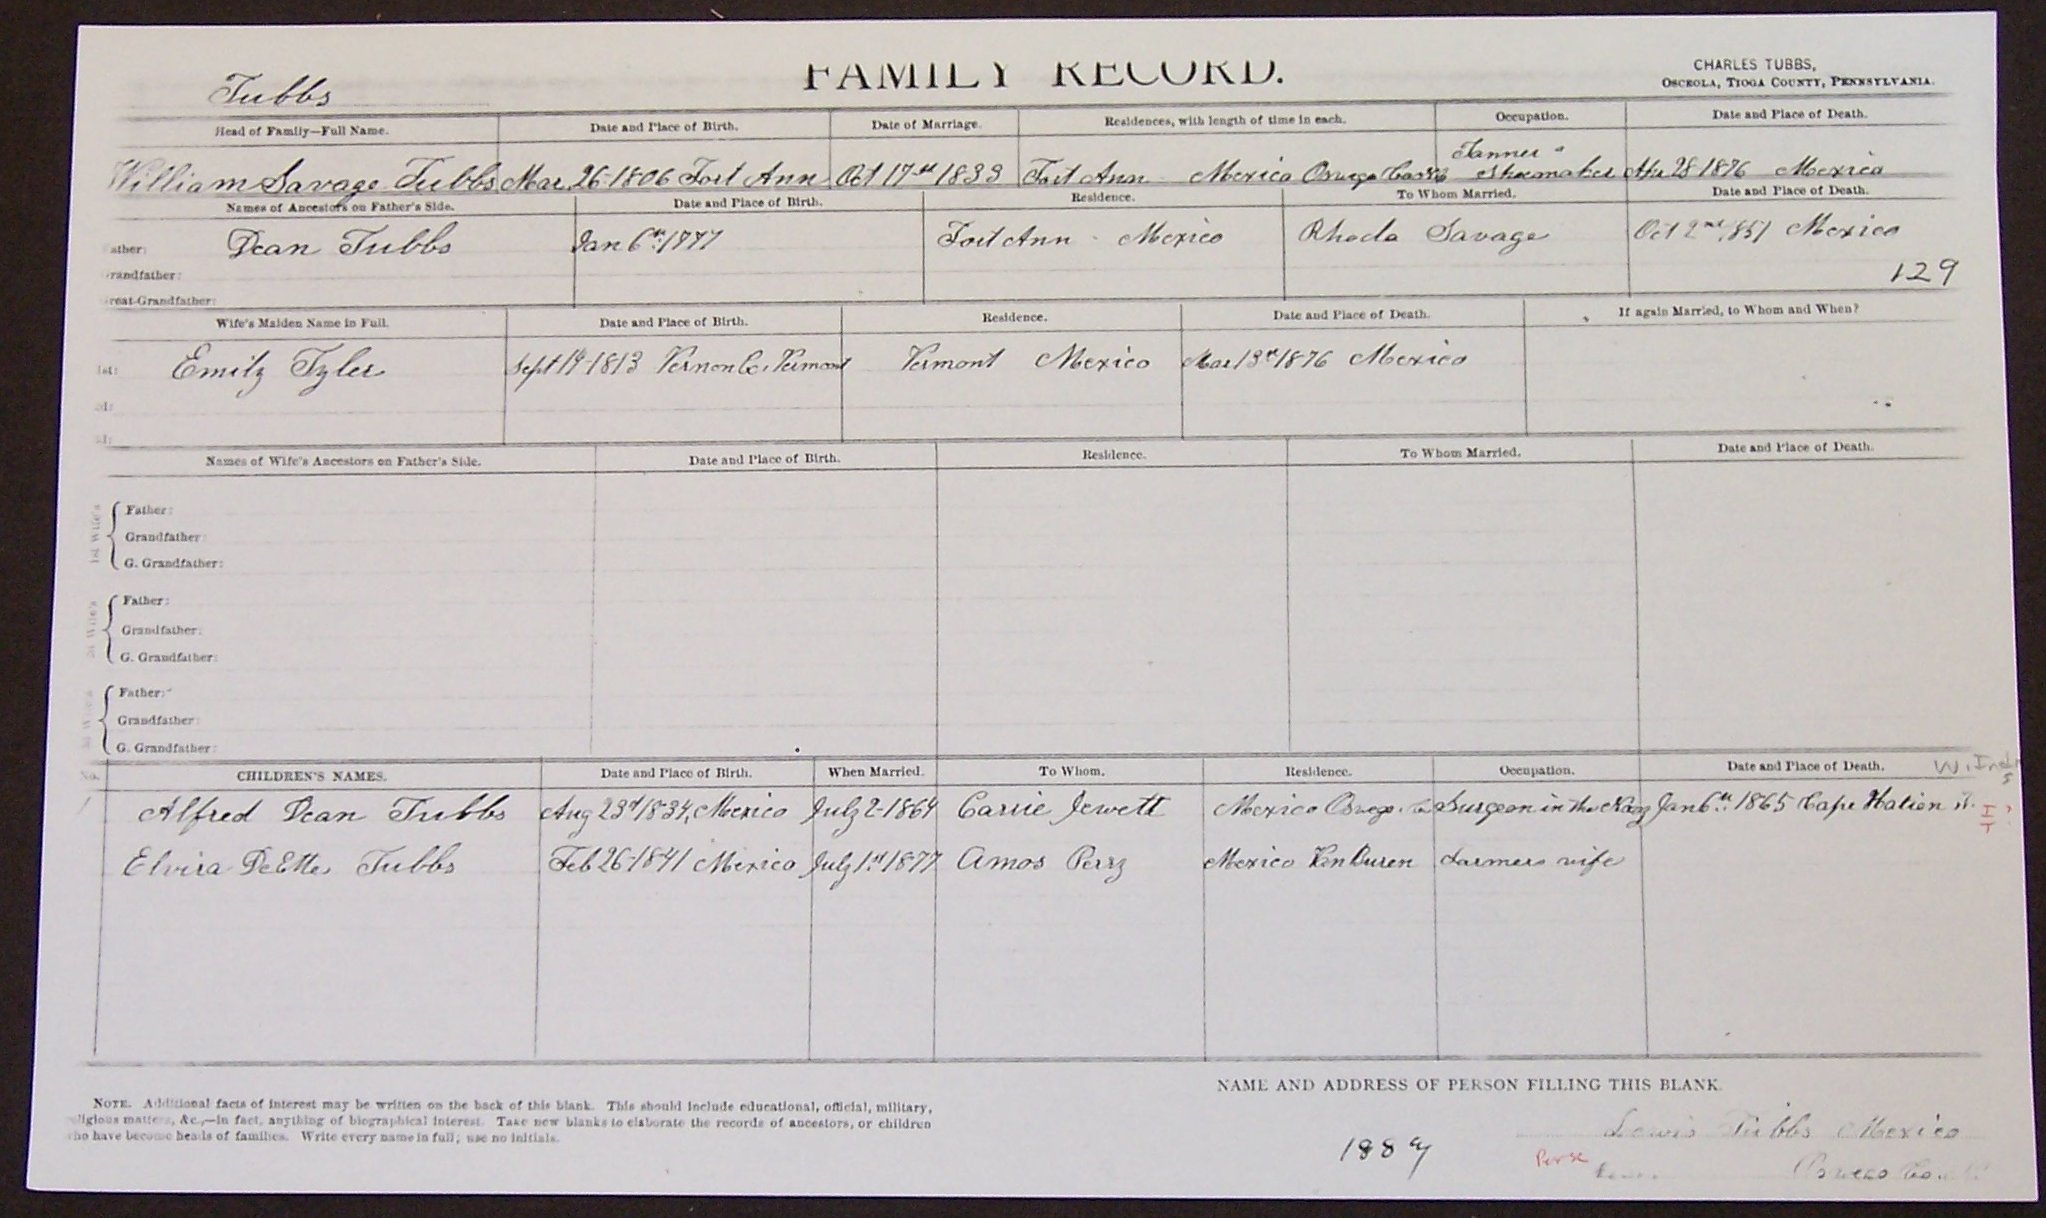 Tubbs
FAMILY RECORD.
CHARLES TUBBS,
OSCEOLA, TIOGA COUNTY, PENNSYLVANIA.
Head of Family—Full Name. Date and Place of Birth. Date of Marriage. Residences, with length of time in each. Occupation. Date and Place of Death.
William Savage Tubbs Mar 26-1806 Fort Ann Oct 17th 1833 Fort Ann Mexico Oswego Tanner Shoemaker Apr 28 1876 Mexico
Names of Ancestors on Father's Side. Date and Place of Birth. Residence. To Whom Married. Date and Place of Death.
ather: Dean Tubbs Jan 6th 1777 Fort Ann - Mexico Rhoda Savage Oct 2nd 1851 Mexico
randfather: 129
reat-Grandfather:
Wife's Maiden Name in Full. Date and Place of Birth. Residence. Date and Place of Death. If again Married, to Whom and When?
1st: Emily Tyler Sept 19-1813 Vernon Co. Vermont Vermont Mexico Mar 13th 1876 Mexico
d:
d:
Names of Wife's Ancestors on Father's Side. Date and Place of Birth. Residence. To Whom Married. Date and Place of Death.
1st Wife's
Father:
Grandfather:
G. Grandfather:
2d Wife's
Father:
Grandfather:
G. Grandfather:
3d Wife's
Father:
Grandfather:
G. Grandfather:
No. CHILDREN'S NAMES. Date and Place of Birth. When Married. To Whom. Residence. Occupation. Date and Place of Death. W. Indies
1 Alfred Dean Tubbs Aug 23d 1834, Mexico July 2-1864 Carrie Jewett Mexico Oswego Co Surgeon in the Navy Jan 6th 1865 Cape Hatien
Elvira DeEtte Tubbs Feb 26-1841 Mexico July 1st 1877 Amos Perry Mexico VanBuren Farmers wife
NAME AND ADDRESS OF PERSON FILLING THIS BLANK.
NOTE. Additional facts of interest may be written on the back of this blank. This should include educational, official, military,
eligious matters, &c.,—in fact, anything of biographical interest. Take new blanks to elaborate the records of ancestors, or children
who have become heads of families. Write every name in full; use no initials.
Lewis Tubbs Mexico
Oswego Co.